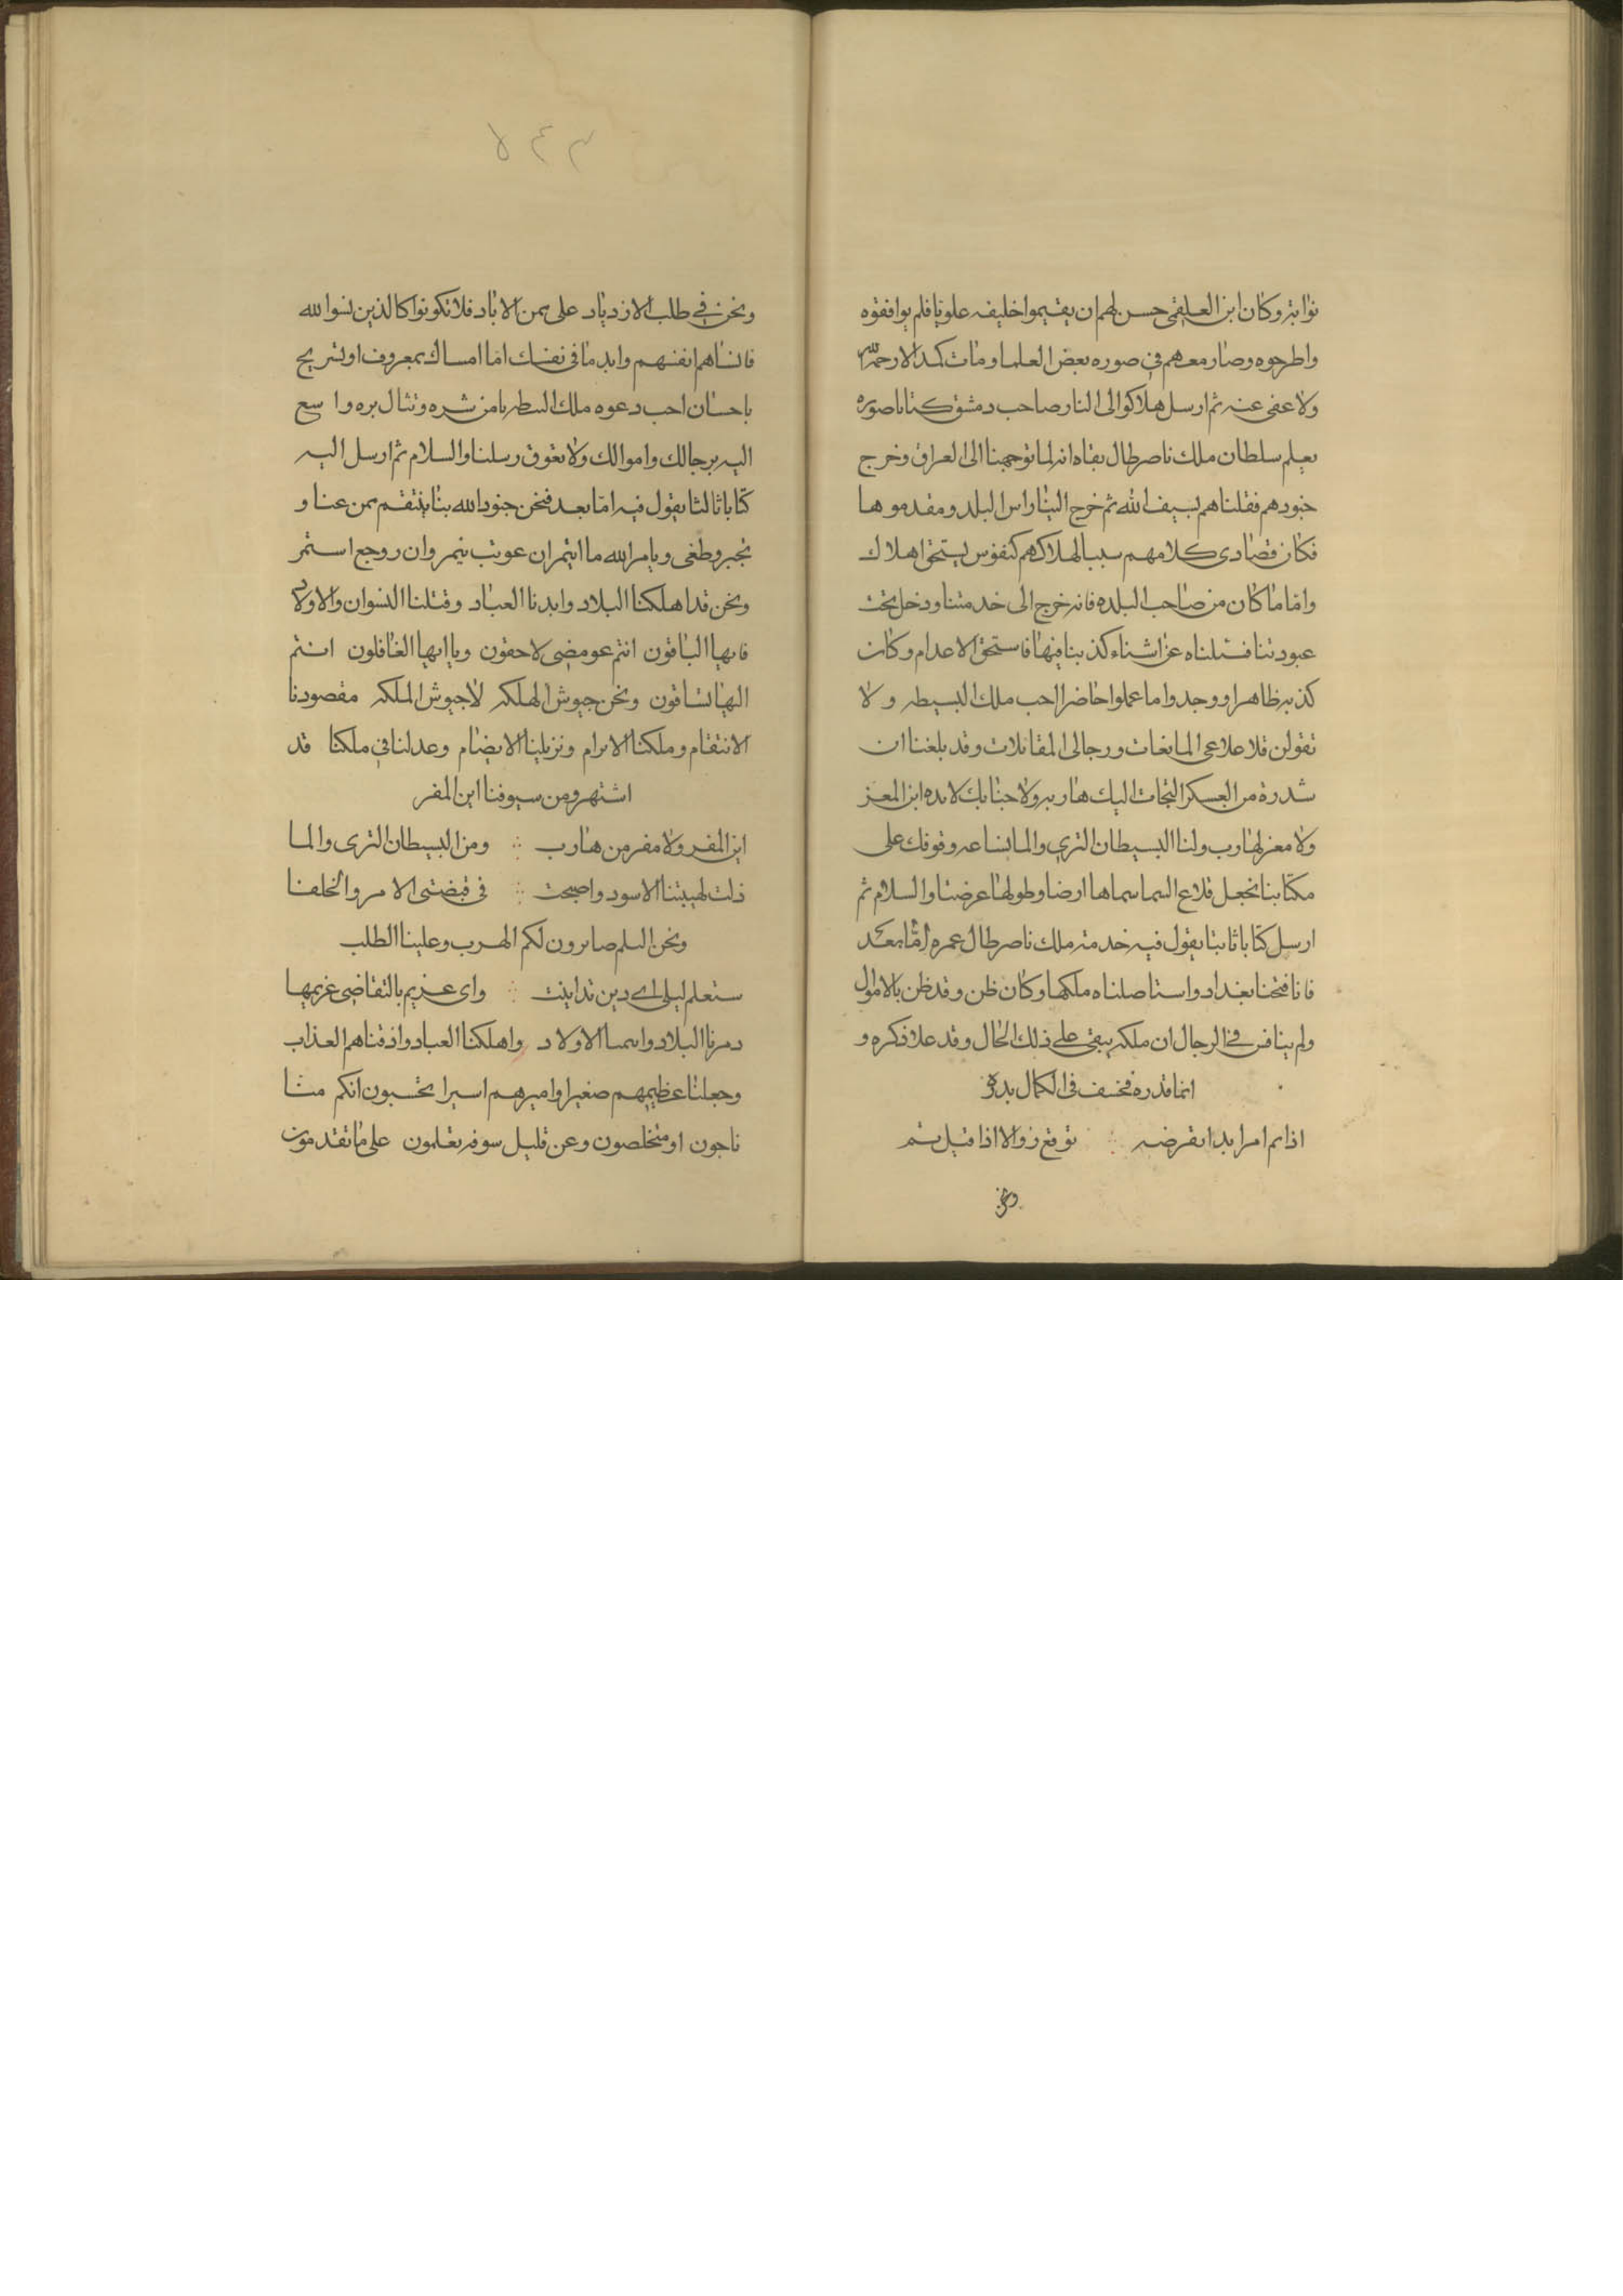 نوابه وكان ابن العلقمى حسن لهم ان يقيموا خليفه علويا فلم يوافقوه
واطرحوه وصار معهم فى صوره بعض العلما ومات كمدا لا رحمه الله
ولا عفى عنه ثم ارسل هلاكوا الى الناصر صاحب دمشق كتابا صوره
يعلم سلطان ملك ناصر طال بقاه انه لما توجهنا الى العراق وخرج
جنودهم فقتلناهم بسيف الله ثم خرج الينا رواس البلد ومقدموها
فكان قصادى كلامهم سببا لهلاكهم كنفوس يستحق اهلاك
واما ما كان من صاحب البلده فانه خرج الى خدمتنا ودخل تحت
عبوديتنا فسئلناه عن اشياء كذبنا فيها فاستحق الاعدام وكان
كذبه ظاهرا ووجدوا ما عملوا حاضرا احب ملك البسيطه ولا
تقولن قلاعى المانعات ورجالى المقاتلات وقد بلغنا ان
شدرة من العسكر التجات اليك هاربه ولا جنابك لايده اين المفر
ولا مفر لهارب ولنا البسيطان الثرى والما بساعه وقوفك على
مكتابنا تجعل قلاع السما سماها ارضا وطولها عرضا والسلام ثم
ارسل كتابا ثانيا يقول فيه خدمته ملك ناصر طال عمره اما بعد
فانا فتحنا بغداد واستاصلناه ملكها وكان ظن وقد ظن بالاموال
ولم ينافس فى الرجال ان ملكه يبقى على ذلك الحال وقد علا ذكره و
انما قدره فخسف فى الكمال بدره
اذا تم امرا بدا نقرضه ∴ توقع زوالا اذا قيل تم
ونحن
٢٤٧
ونحن فى طلب الازدياد على ممن الاباد فلا تكونوا كالذين نسوا الله
فانساهم انفسهم وابد ما فى نفسك اما امساك بمعروف او تسريح
باحسان احب دعوه ملك البسطه تامن شره وتنال بره واسع
اليه برجالك واموالك ولا تعوق رسلنا والسلام ثم ارسل اليه
كتابا ثالثا يقول فيه اما بعد فنحن جنود الله بنا ينتقم ممن عتا و
تجبر وطغى وبامر الله ما ائتمر ان عوتب تنمر وان روجع استمر
ونحن قد اهلكنا البلاد وابدنا العباد وقتلنا النسوان والاولاد
فايها الباقون انتم عو مضى لاحقون ويا ايها الغافلون انتم
اليها تساقون ونحن جيوش الهلكه لا جيوش الملكه مقصودنا
الانتقام وملكنا لا يرام ونزيلنا لا يضام وعدلنا فى ملكنا قد
اشتهر ومن سيوفنا اين المفر
اين المفر ولا مفر من هارب ∴ ومن البسيطان الثرى والما
ذلت لهيبتنا الاسود واصبحت ∴ فى قبضتى الامر والخلفا
ونحن اليلم صايرون لكم الهرب وعلينا الطلب
ستعلم ليلى اى دين تداينت ∴ واى غريم بالتقاضى غريمها
دمرنا البلاد وايتمنا الاولاد واهلكنا العباد واذقناهم العذاب
وجعلنا عظيمهم صغيرا واميرهم اسيرا تحسبون انكم منا
ناجون او متخلصون وعن قليل سوف تعلمون على ما تقدمون